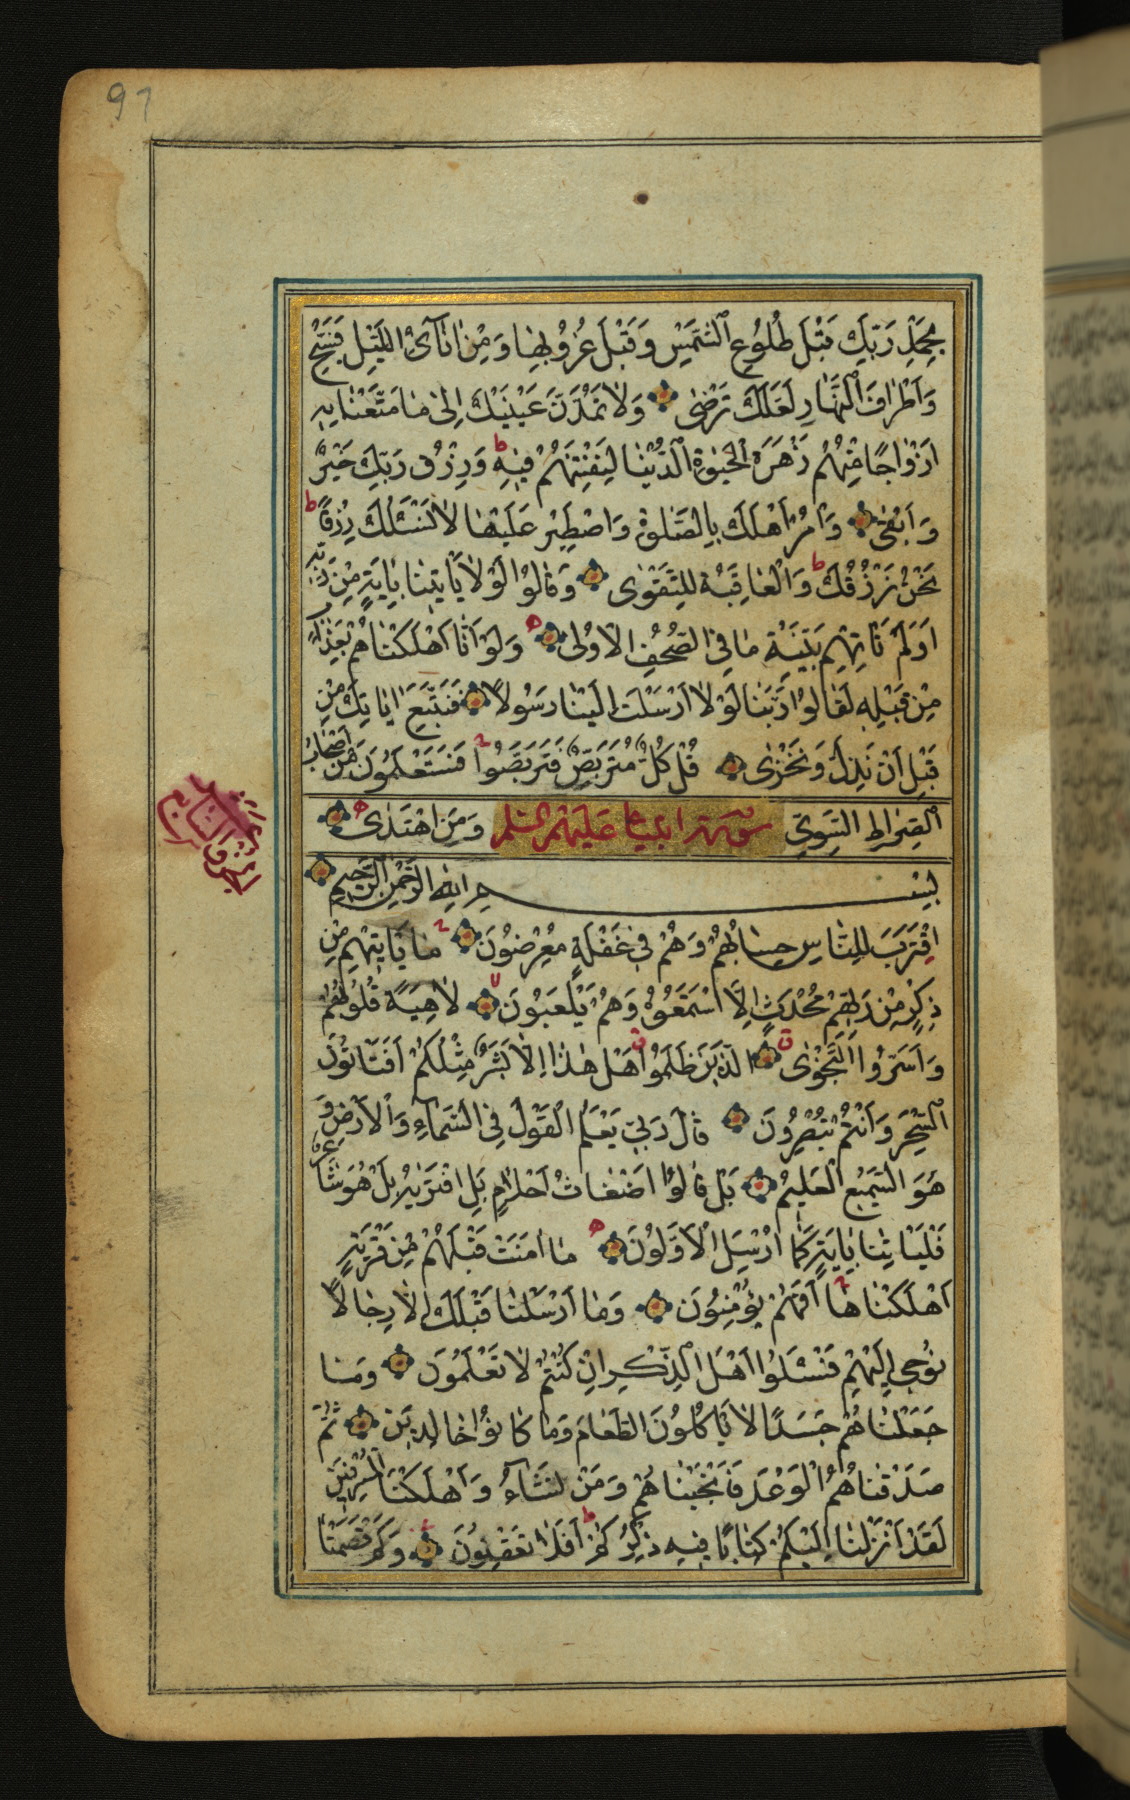 97
بِحَمْدِ رَبِّكَ قَبْلَ طُلُوعِ ٱلشَّمْسِ وَقَبْلَ غُرُوبِهٰا وَمِنْ اٰنٰآئِ اللَّيْلِ فَسَبِّحْ
وَاَطْرٰافَ ٱلنَّهٰارِ لَعَلَّكَ تَرْضٰى وَلاٰ تَمُدَّنَّ عَيْنَيْكَ اِلىٰ مٰا مَتَّعْنٰا بِهِ
اَزْوٰاجًا مِنْهُمْ زَهْرَةَ الْحَيٰوةِ ٱلدُّنْيٰا لِيَفْتِنَهُمْ فِيهِ ط وَرِزْقُ رَبِّكَ خَيْرٌ
وَاَبْقىٰ وَأْمُرْ اَهْلَكَ بِالصَّلٰوةِ وَاصْطَبِرْ عَلَيْهٰا لاٰ نَسْئَلُكَ رِزْقًا ط
نَحْنُ نَرْزُقُكَ ط وَالْعٰاقِبَةُ لِلتَّقْوٰى وَقٰالُوا لَوْلاٰ يَأْتِينٰا بِاٰيَةٍ مِنْ رَبِّهِ
اَوَلَمْ تَأْتِهِمْ بَيِّنَةُ مٰا فِي الصُّحُفِ الْاُولىٰ ه وَلَوْ اَنّٰا اَهْلَكْنٰاهُمْ بِعَذٰابٍ
مِنْ قَبْلِهِ لَقٰالُوا رَبَّنٰا لَوْلاٰ اَرْسَلْتَ اِلَيْنٰا رَسُولاً فَنَتَّبِعَ اٰيٰاتِكَ مِنْ
قَبْلِ اَنْ نَذِلَّ وَنَخْزٰى قُلْ كُلٌّ مُتَرَبِّصٌ فَتَرَبَّصُوا فَسَتَعْلَمُونَ مَنْ اَصْحٰابُ
ٱلصِّرٰاطِ السَّوِيِّ سورة انبياء عليهم السلم وَمَنِ اهْتَدٰى ه
بِسْمِ اللهِ الرَّحْمٰنِ الرَّحِيمِ
اِقْتَرَبَ لِلنّٰاسِ حِسٰابُهُمْ وَهُمْ فِي غَفْلَةٍ مُعْرِضُونَ مٰا يَأْتِيهِمْ مِنْ
ذِكْرٍ مِنْ رَبِّهِمْ مُحْدَثٍ اِلَّا اسْتَمَعُوهُ وَهُمْ يَلْعَبُونَ لاٰهِيَةً قُلُوبُهُمْ
وَاَسَرُّوا النَّجْوٰى ٱلَّذِينَ ظَلَمُوا هَلْ هٰذٰا اِلاّٰ بَشَرٌ مِثْلُكُمْ اَفَتَأْتُونَ
ٱلسِّحْرَ وَاَنْتُمْ تُبْصِرُونَ قٰالَ رَبِّي يَعْلَمُ الْقَوْلَ فِي السَّمٰآءِ وَالْاَرْضِ وَ
هُوَ السَّمِيعُ الْعَلِيمُ بَلْ قٰالُوا اَضْغٰاثُ اَحْلٰامٍ بَلِ افْتَرٰيهُ بَلْ هُوَ شٰاعِرٌ
فَلْيَأْتِنٰا بِاٰيَةٍ كَمٰا اُرْسِلَ الْاَوَّلُونَ ه مٰا اٰمَنَتْ قَبْلَهُمْ مِنْ قَرْيَةٍ
اَهْلَكْنٰاهٰا اَفَهُمْ يُؤْمِنُونَ وَمٰا اَرْسَلْنٰا قَبْلَكَ اِلاّٰ رِجٰالاً
نُوحِي اِلَيْهِمْ فَسْئَلُوا اَهْلَ ٱلذِّكْرِ اِنْ كُنْتُمْ لاٰ تَعْلَمُونَ وَمٰا
جَعَلْنٰاهُمْ جَسَدًا لاٰ يَأْكُلُونَ الطَّعٰامَ وَمٰا كٰانُوا خٰالِدِينَ ثُمَّ
صَدَقْنٰاهُمُ الْوَعْدَ فَاَنْجَيْنٰاهُمْ وَمَنْ نَشٰآءُ وَاَهْلَكْنَا الْمُسْرِفِينَ
لَقَدْ اَنْزَلْنٰا اِلَيْكُمْ كِتٰابًا فِيهِ ذِكْرُكُمْ ط اَفَلاٰ تَعْقِلُونَ وَكَمْ قَصَمْنٰا